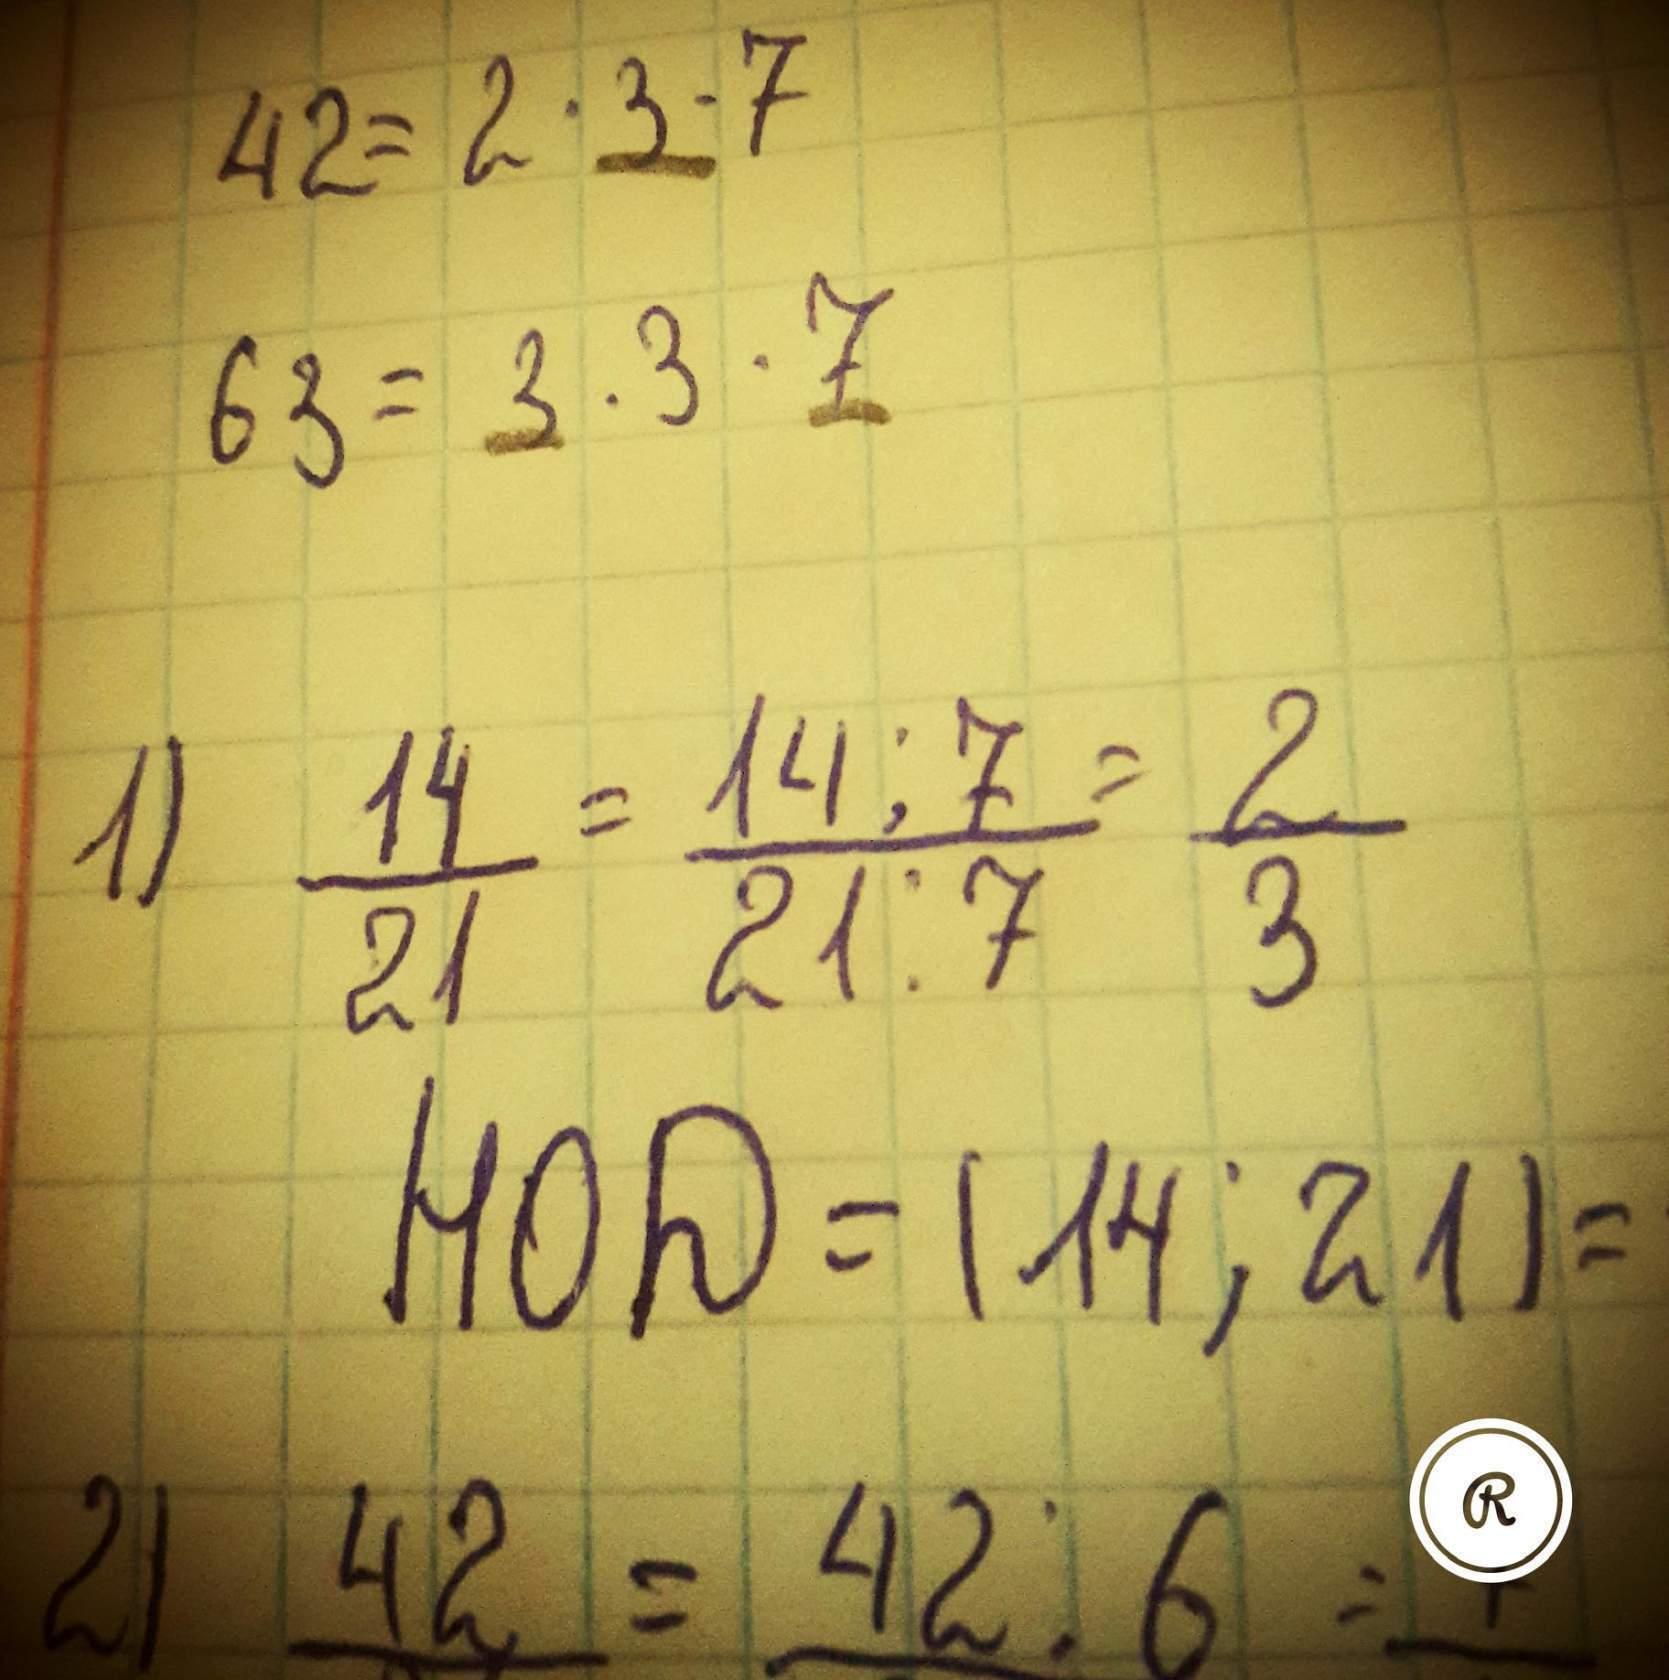 42 = 2 · 3 · 7
63 = 3 · 3 · 7
1) 14/21 = 14:7/21:7 = 2/3
НОД = (14; 21) =
2) 42 = 42 : 6 =
R